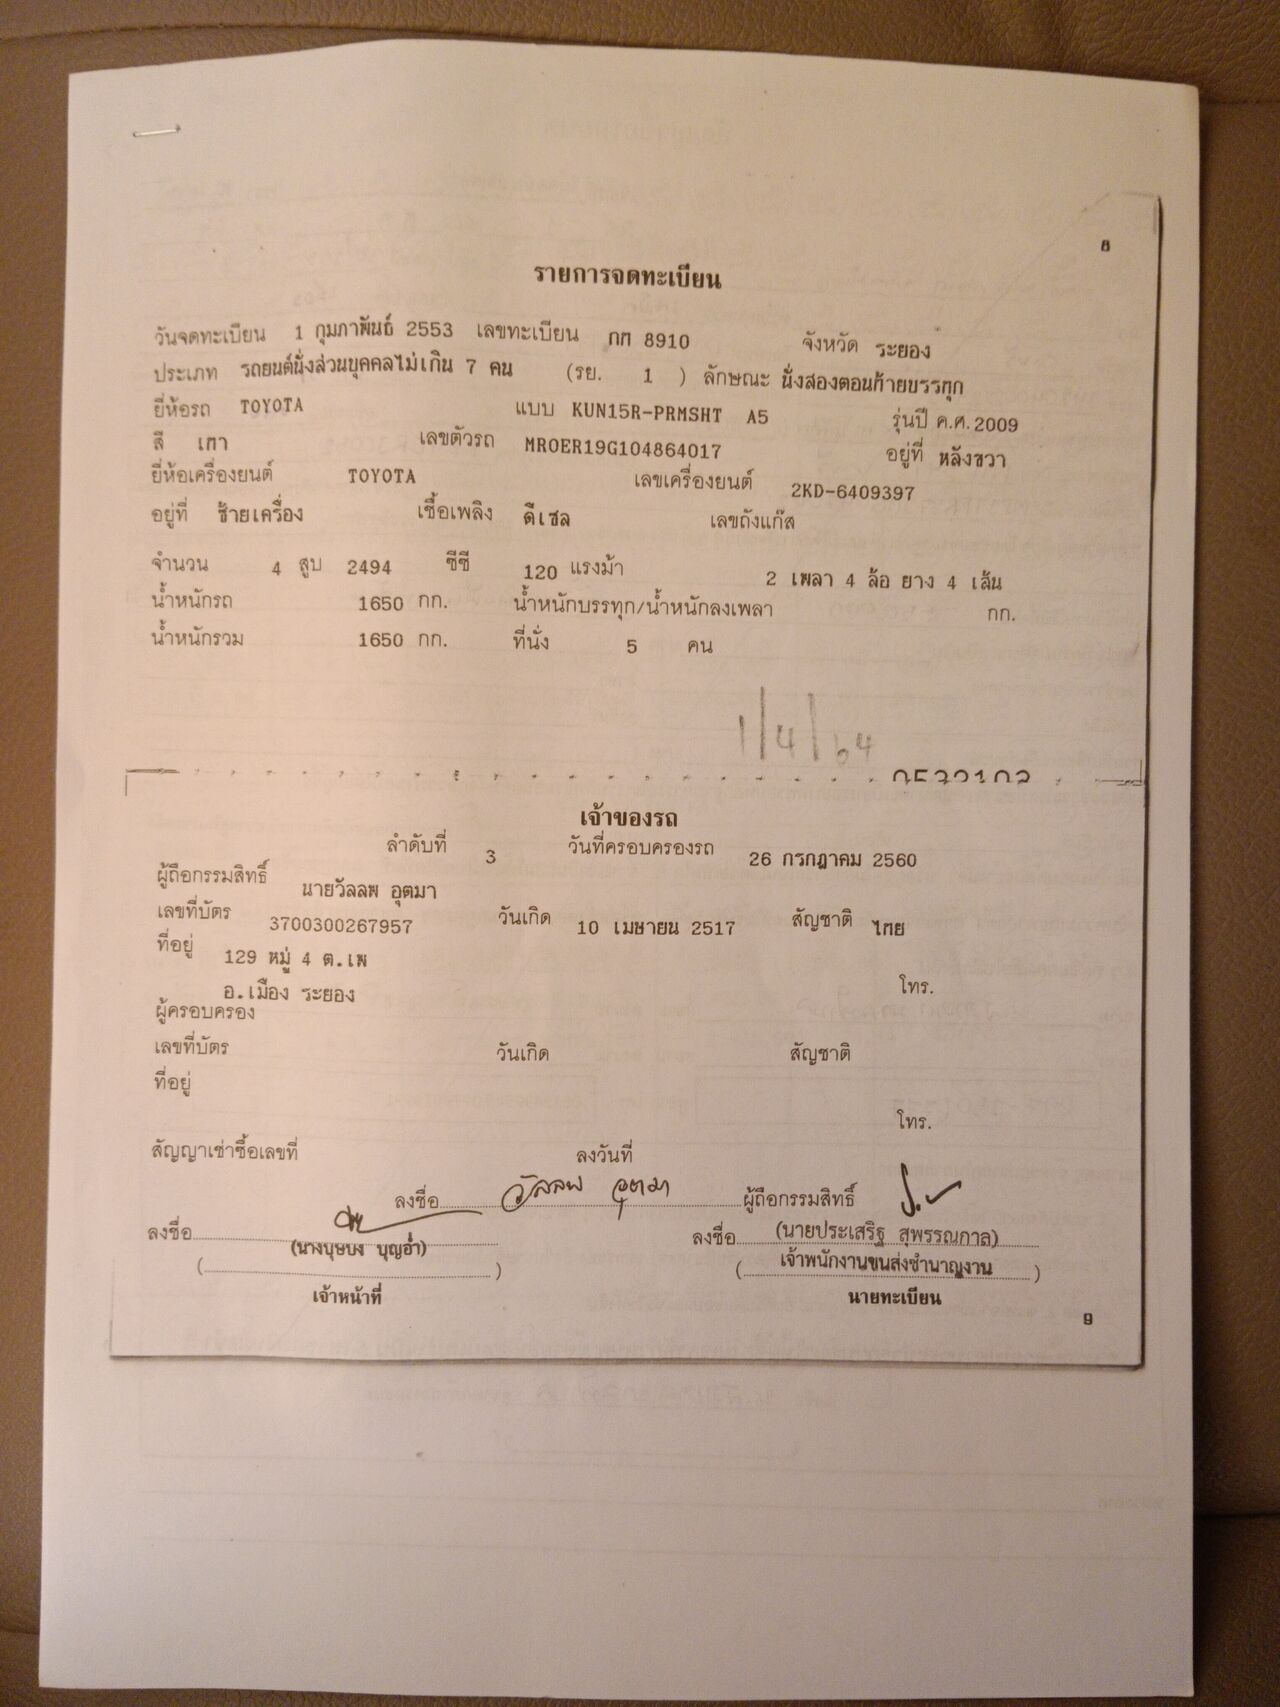 8
รายการจดทะเบียน
วันจดทะเบียน 1 กุมภาพันธ์ 2553 เลขทะเบียน กท 8910 จังหวัด ระยอง
ประเภท รถยนต์นั่งส่วนบุคคลไม่เกิน 7 คน (รย. 1 ) ลักษณะ นั่งสองตอนท้ายบรรทุก
ยี่ห้อรถ TOYOTA แบบ KUN15R-PRMSHT A5 รุ่นปี ค.ศ. 2009
สี เทา เลขตัวรถ MROER19G104864017 อยู่ที่ หลังขวา
ยี่ห้อเครื่องยนต์ TOYOTA เลขเครื่องยนต์ 2KD-6409397
อยู่ที่ ซ้ายเครื่อง เชื้อเพลิง ดีเซล เลขถังแก๊ส
จำนวน 4 สูบ 2494 ซีซี 120 แรงม้า 2 เพลา 4 ล้อ ยาง 4 เส้น
น้ำหนักรถ 1650 กก. น้ำหนักบรรทุก/น้ำหนักลงเพลา กก.
น้ำหนักรวม 1650 กก. ที่นั่ง 5 คน
1/4/64
เจ้าของรถ
ลำดับที่ 3 วันที่ครอบครองรถ 26 กรกฎาคม 2560
ผู้ถือกรรมสิทธิ์ นายวัลลพ อุตมา
เลขที่บัตร 3700300267957 วันเกิด 10 เมษายน 2517 สัญชาติ ไทย
ที่อยู่ 129 หมู่ 4 ต.เพ
อ.เมือง ระยอง โทร.
ผู้ครอบครอง
เลขที่บัตร วันเกิด สัญชาติ
ที่อยู่
โทร.
สัญญาเช่าซื้อเลขที่ ลงวันที่
ลงชื่อ วัลลพ อุตมา ผู้ถือกรรมสิทธิ์
ลงชื่อ ลงชื่อ (นายประเสริฐ สุพรรณกาล)
(นางบุษบง บุญอ่ำ) เจ้าพนักงานขนส่งชำนาญงาน
เจ้าหน้าที่ นายทะเบียน
9